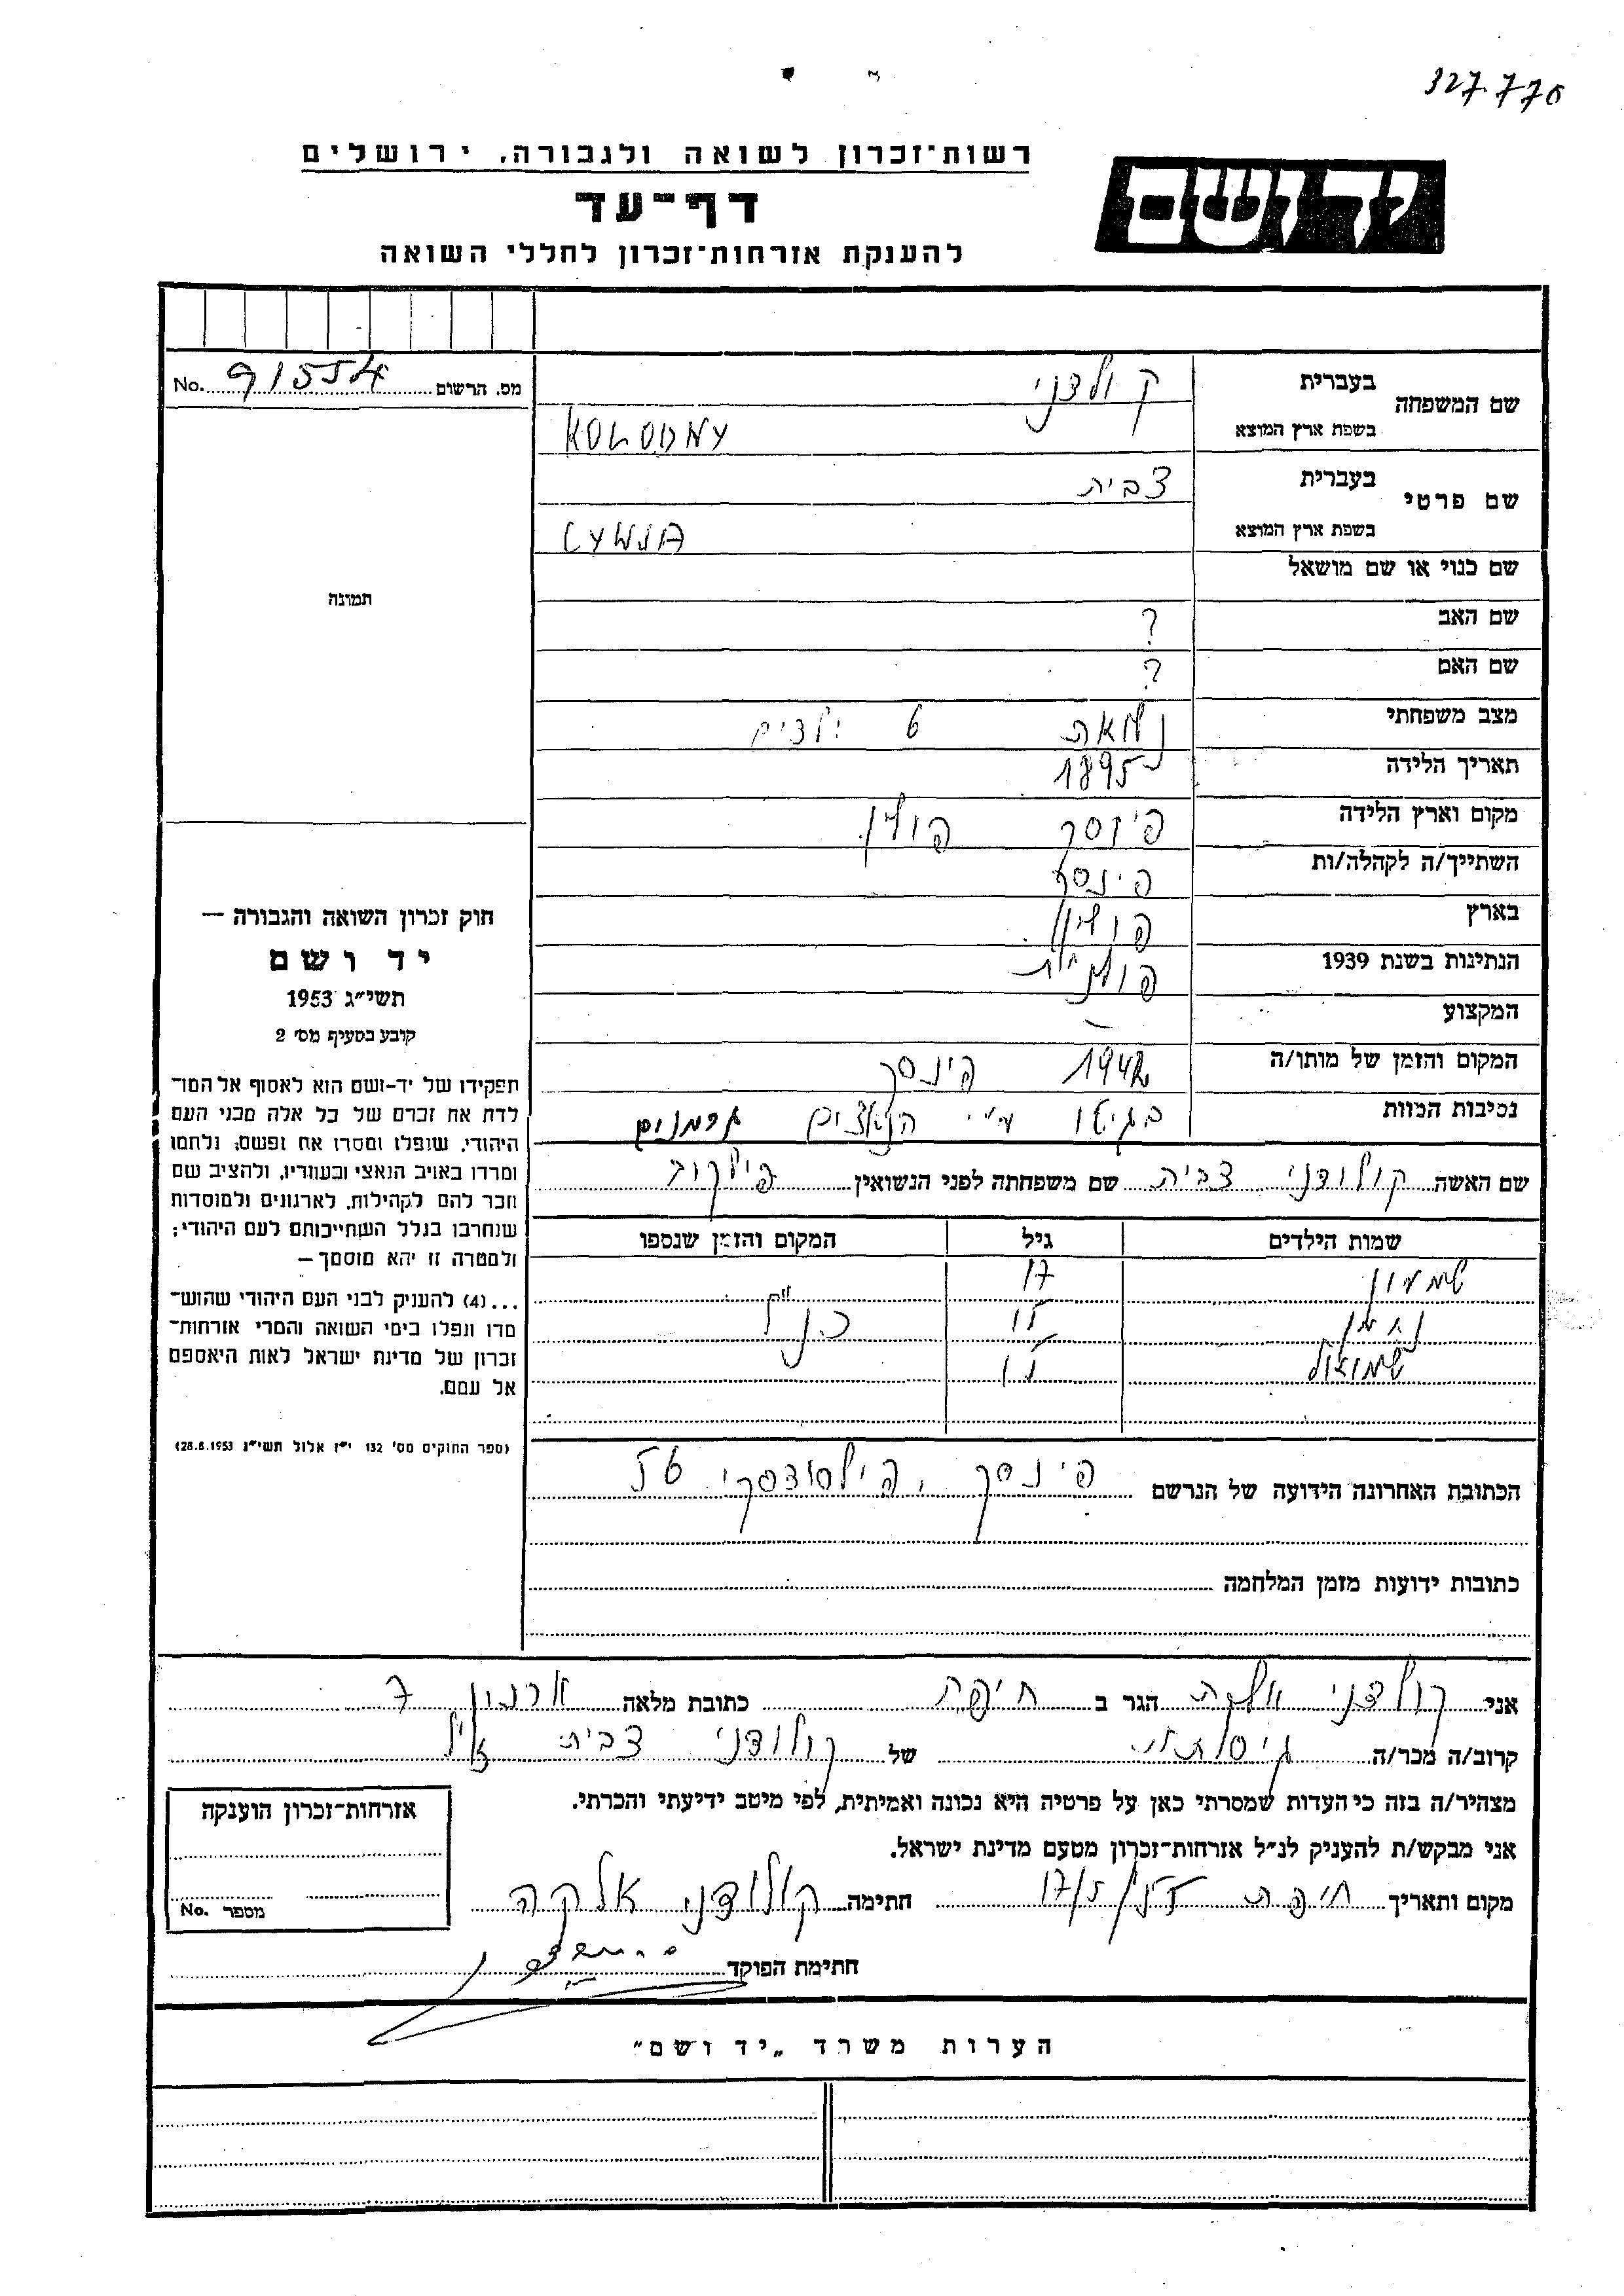 327.770
רשות־זכרון לשואה ולגבורה, ירושלים
דף־עד
להענקת אזרחות־זכרון לחללי השואה
יד ושם
No. 91554 מס. הרשום
שם המשפחה בעברית קולדני
בשפת ארץ המוצא KOLODNY
שם פרטי בעברית צביה
בשפת ארץ המוצא
שם כנוי או שם מושאל
שם האב ?
שם האם ?
מצב משפחתי נשואה 6 ילדים
תאריך הלידה 1895
מקום וארץ הלידה פינסק פולין
השתייך/ה לקהלה/ות פינסק
בארץ פולין
הנתינות בשנת 1939 פולנית
המקצוע –
המקום והזמן של מותו/ה 1942 פינסק
נסיבות המוות בגיטו ע"י הנאצים גרמנים
שם האשה קולודני צביה שם משפחתה לפני הנשואין
שמות הילדים גיל המקום והזמן שנספו
שמעון 17
נתן 15 כנ"ל
שמואל
הכתובת האחרונה הידועה של הנרשם פינסק, פילסודסקי 56
כתובות ידועות מזמן המלחמה
תמונה
חוק זכרון השואה והגבורה —
יד ושם
תשי"ג 1953
קובע בסעיף מס' 2
תפקידו של יד-ושם הוא לאסוף אל המו־
לדת את זכרם של כל אלה מבני העם
היהודי, שנפלו ומסרו את נפשם, נלחמו
ומרדו באויב הנאצי ובעוזריו, ולהציב שם
וזכר להם לקהילות, לארגונים ולמוסדות
שנחרבו בגלל השתייכותם לעם היהודי;
ולמטרה זו יהא מוסמך —
...(4) להעניק לבני העם היהודי שהוש־
מדו ונפלו בימי השואה והמרי אזרחות־
זכרון של מדינת ישראל לאות היאספם
אל עמם.
(ספר החוקים מס' 132 י"ז אלול תשי"ג 28.8.1953)
אני קולדני אלקה הגר ב חיפה כתובת מלאה ארנון 7
קרוב/ה מכר/ה גיסתי של קולודני צביה
מצהיר/ה בזה כי העדות שמסרתי כאן על פרטיה היא נכונה ואמיתית, לפי מיטב ידיעתי והכרתי.
אני מבקש/ת להעניק לנ"ל אזרחות־זכרון מטעם מדינת ישראל.
מקום ותאריך חיפה 17/5/55 חתימה קולודני אלקה
חתימת הפוקד
אזרחות־זכרון הוענקה
מספר No.
הערות משרד „יד ושם"